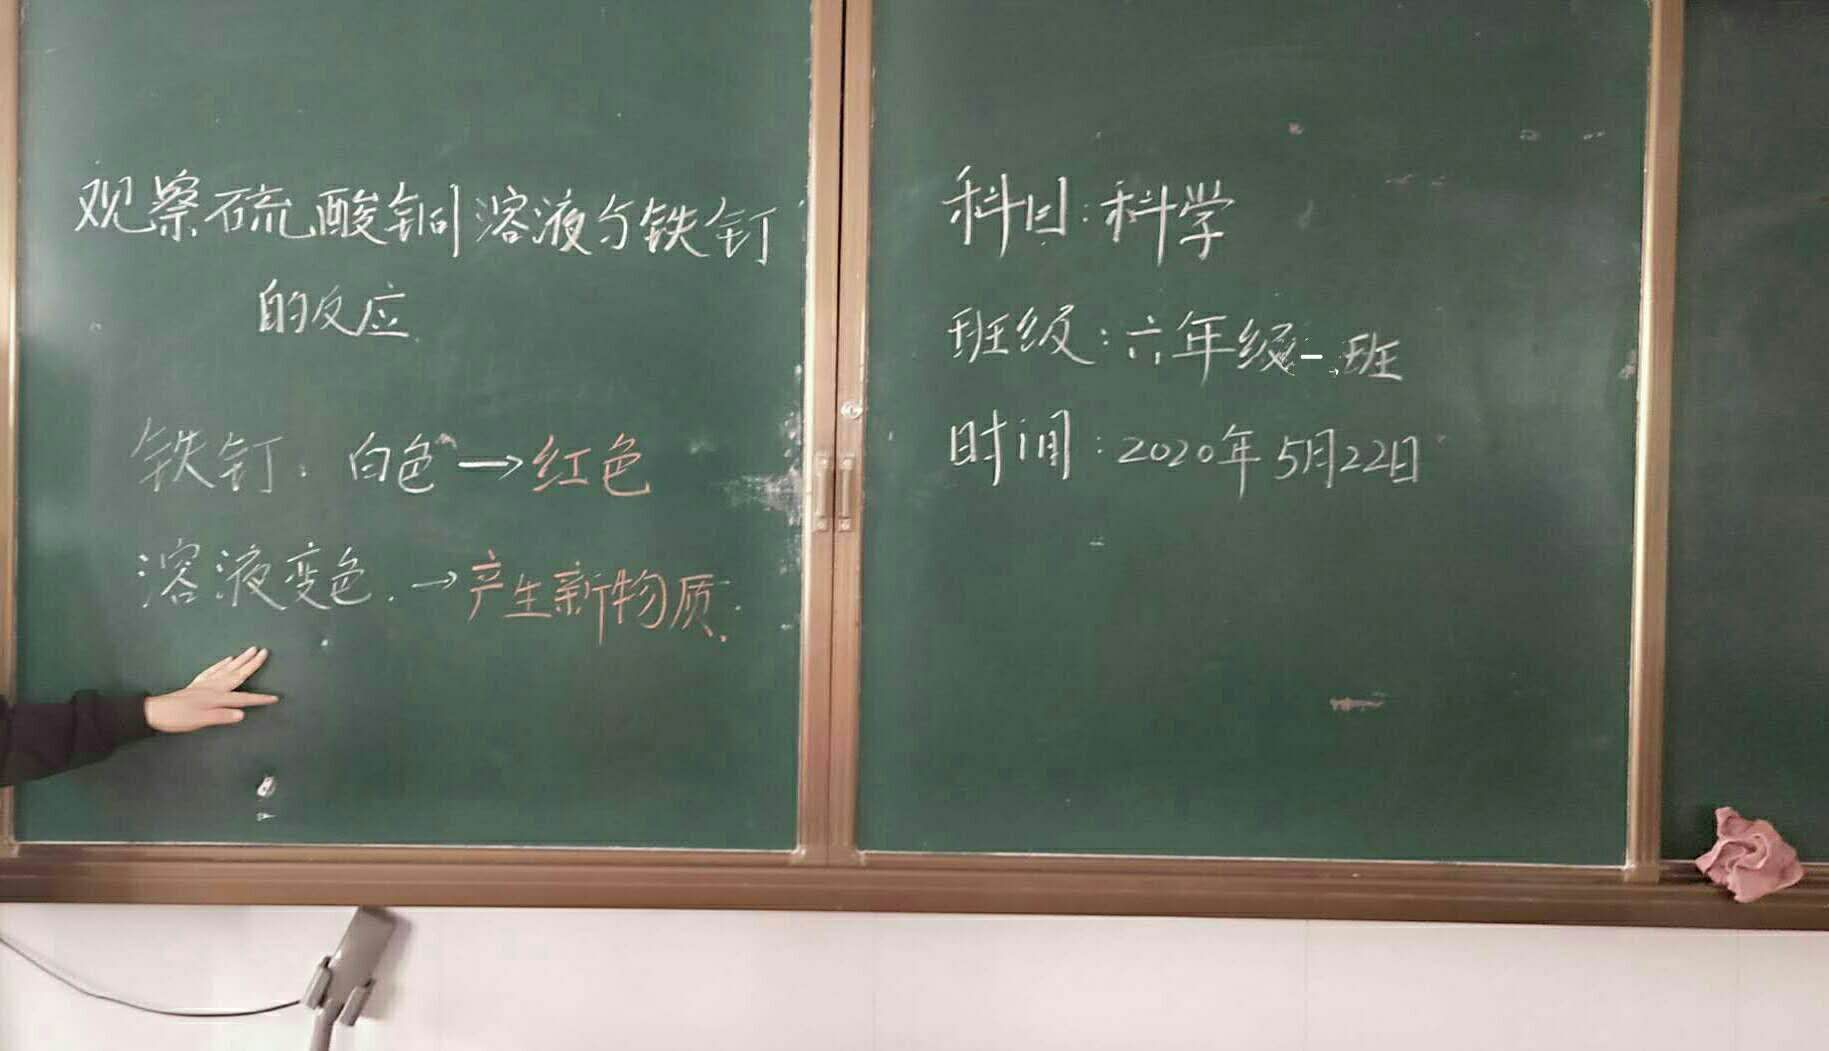 观察硫酸铜溶液与铁钉
的反应
铁钉：白色→红色
溶液变色.→产生新物质.
科目：科学
班级：六年级一班
时间：2020年5月22日